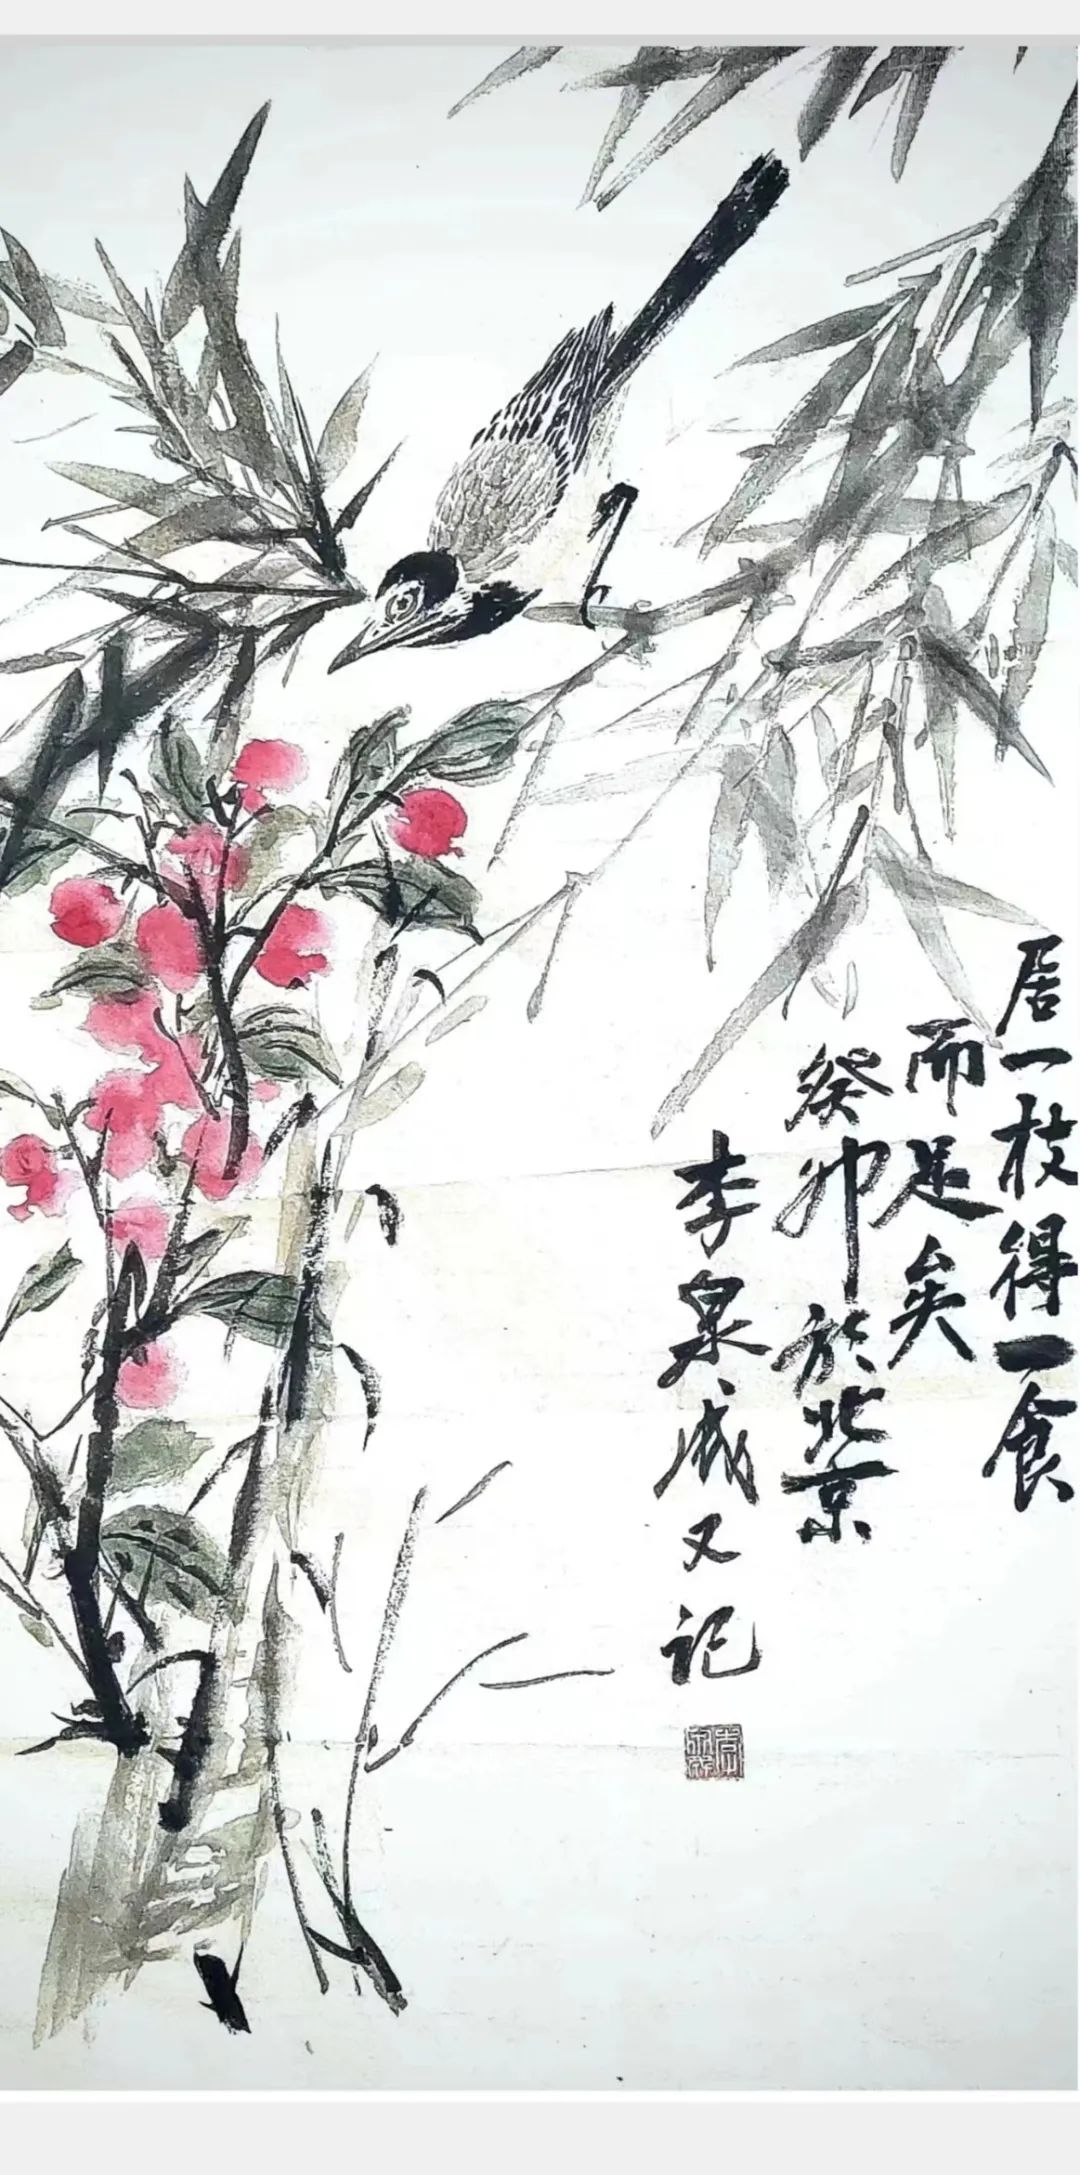 居一枝得一食
而足矣
癸卯於北京
李泉成又记